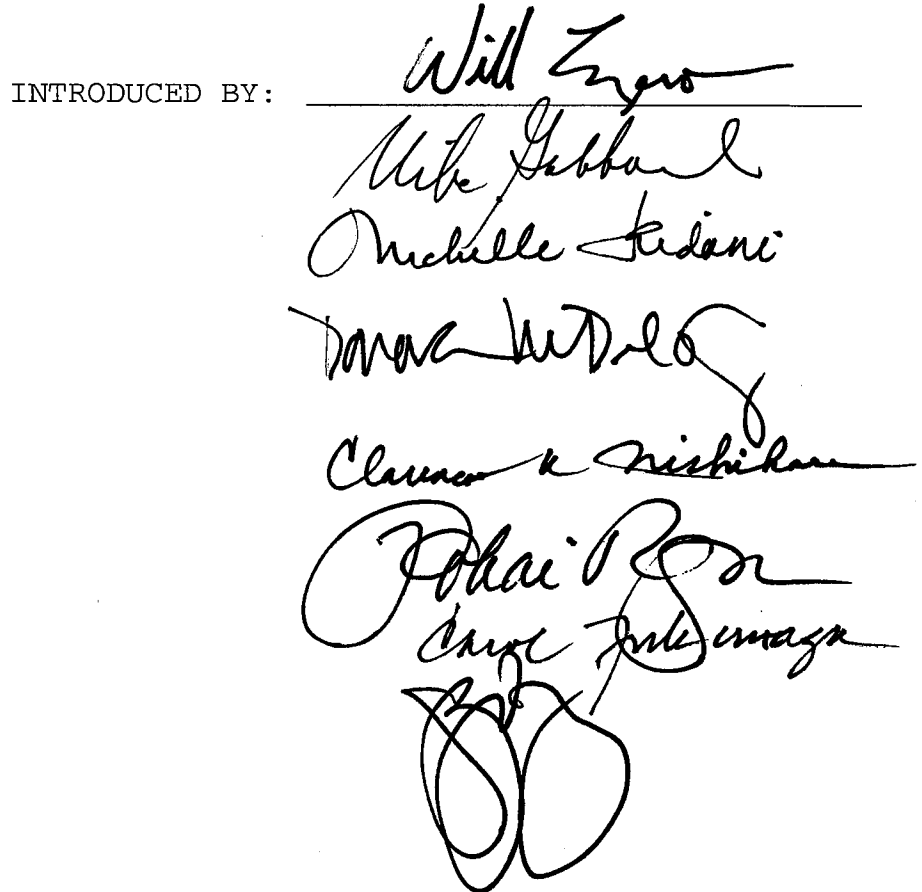 INTRODUCED BY: Will
Mike Gabbard
Michelle Kidani
Clarence K Nishihara
Pohai Ryan
Carol Fukunaga